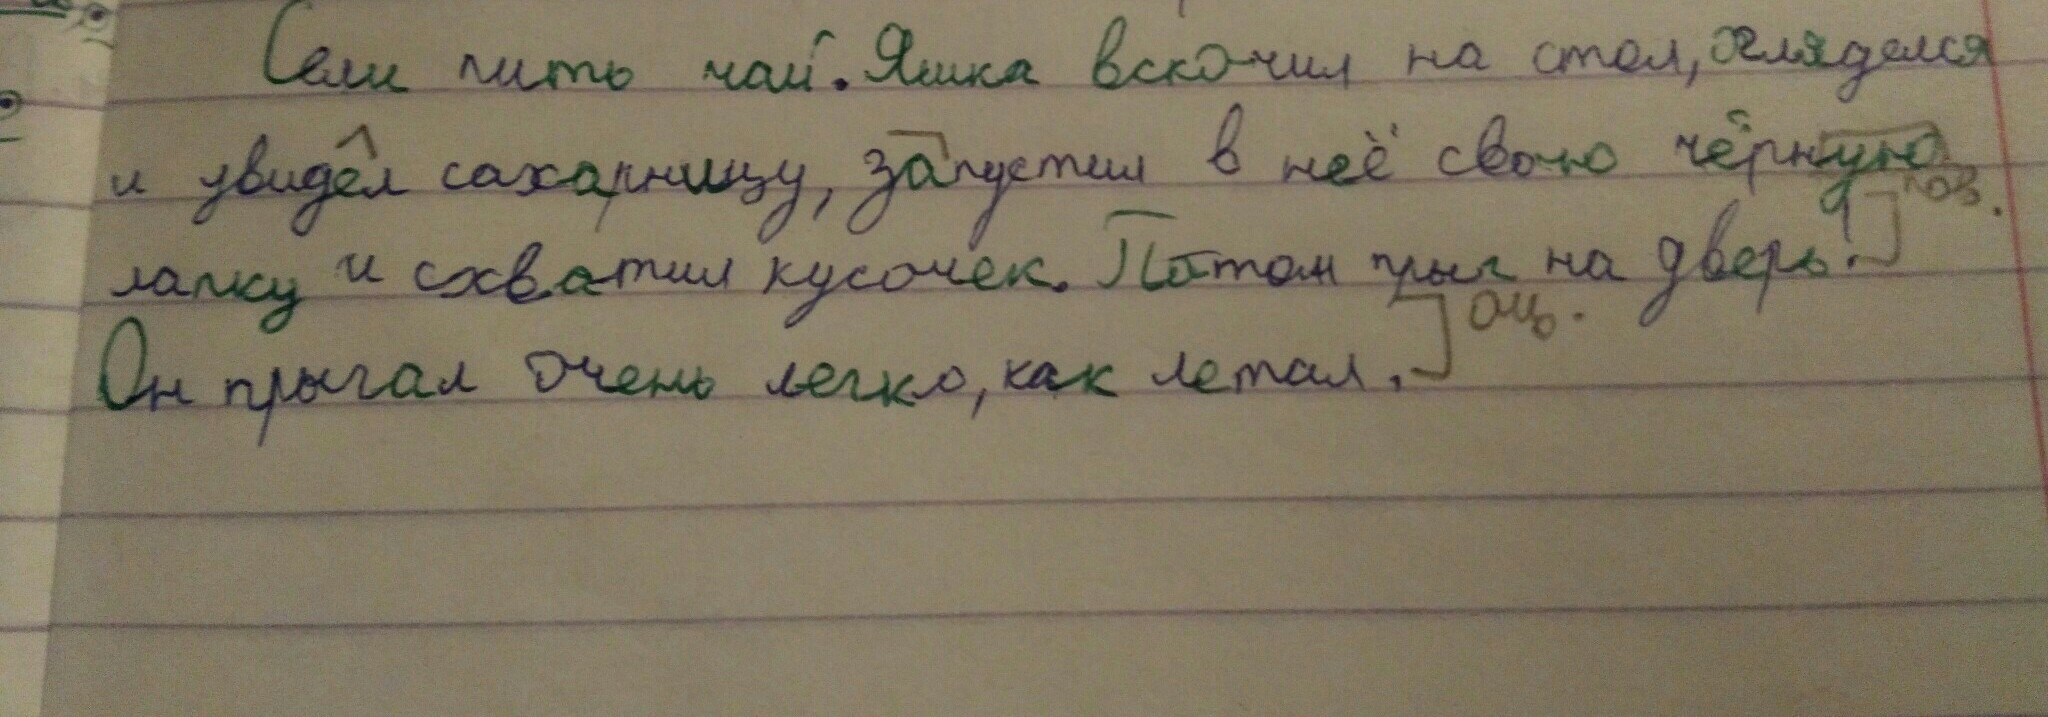 Сели пить чай. Яшка вскочил на стол, огляделся
и увидел сахарницу, запустил в неё свою чёрную
лапку и схватил кусочек. Потом прыг на дверь! пов.
Он прыгал очень легко, как летал. оц.